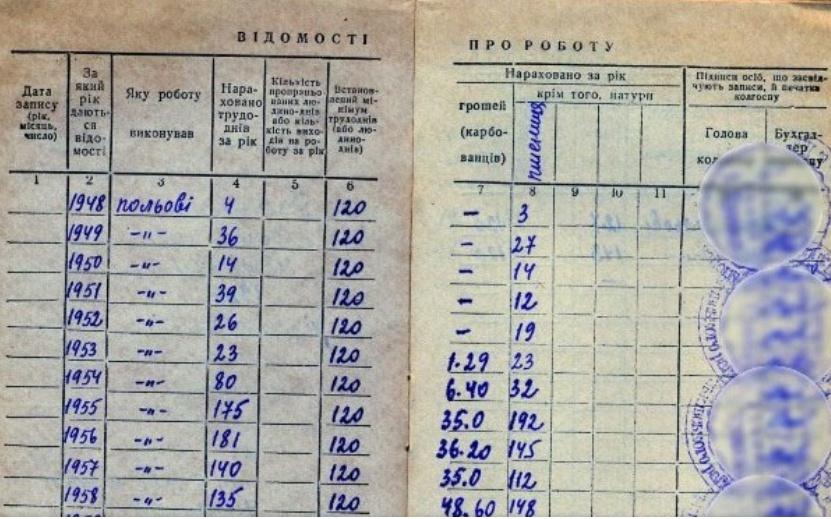 ВІДОМОСТІ ПРО РОБОТУ
Дата запису (рік, місяць, число)
За який рік дають-ся відо-мості
Яку роботу виконував
Нара-ховано трудо-днів за рік
Кількість пропрацьо-ваних лю-дино-днів або кіль-кість вихо-дів на ро-боту за рік
Встанов-лений мі-німум трудоднів (або лю-дино-днів)
Нараховано за рік
грошей (карбо-ванців)
крім того, натури
пшениця
Підписи осіб, що засвід-чують записи, й печатка колгоспу
Голова
Бухгал-тер
1 2 3 4 5 6 7 8 9 10 11
1948 польові 4 120 – 3
1949 -„- 36 120 – 27
1950 -„- 14 120 – 14
1951 -„- 39 120 – 12
1952 -„- 26 120 – 19
1953 -„- 23 120 1.29 23
1954 -„- 80 120 6.40 32
1955 -„- 175 120 35.0 192
1956 -„- 181 120 36.20 145
1957 -„- 140 120 35.0 112
1958 -„- 135 120 48.60 148